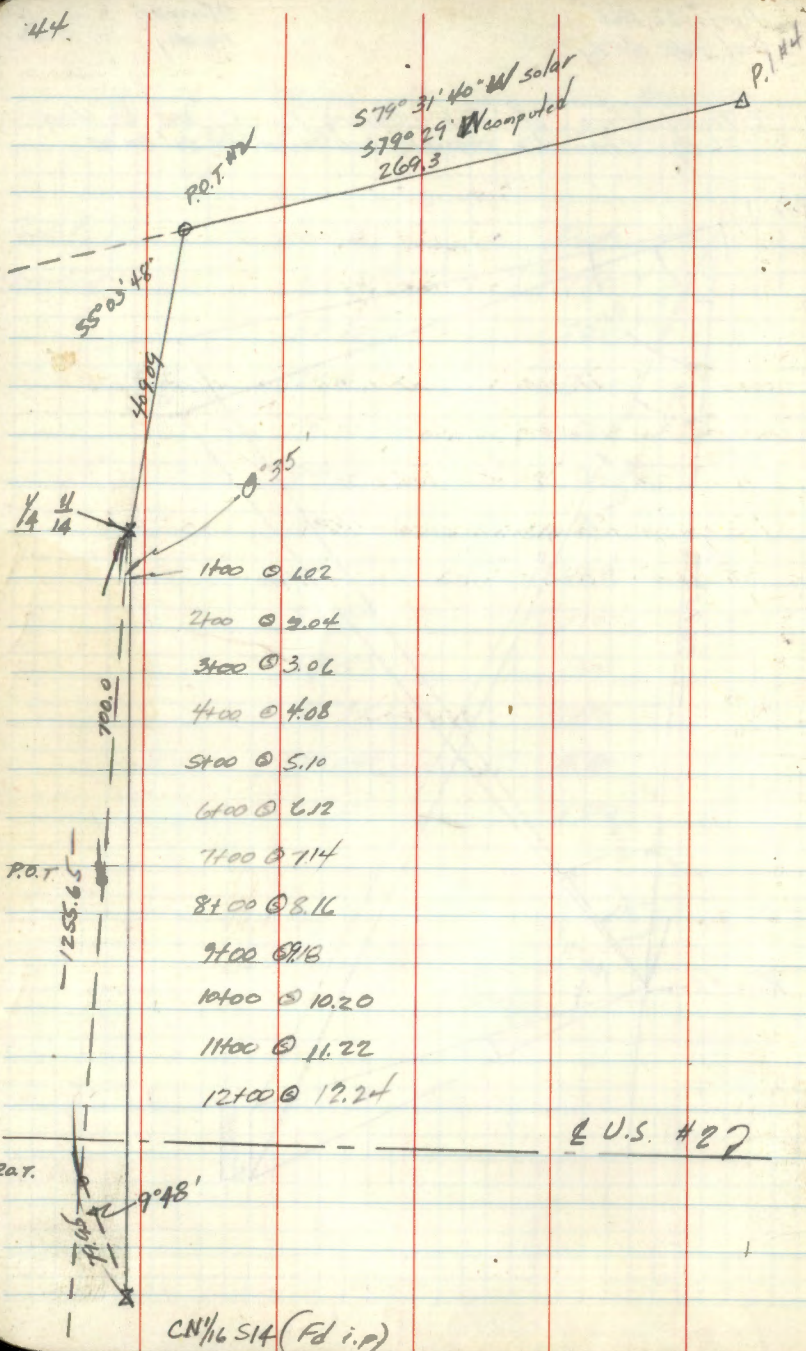 44
S79° 31' 40" W solar
S79° 29' W computed
269.3
P.I #4
P.O.T. #2
55° 03' 48"
409.09
0° 35'
1/4 11/14
1+00 @ 1.02
2+00 @ 2.04
3+00 @ 3.06
4+00 @ 4.08
5+00 @ 5.10
6+00 @ 6.12
7+00 @ 7.14
8+00 @ 8.16
9+00 @ 9.18
10+00 @ 10.20
11+00 @ 11.22
12+00 @ 12.24
700.0
P.O.T.
1255.65
℄ U.S. #2
P.O.T.
9°48'
CN 1/16 S14 (Fd i.p)